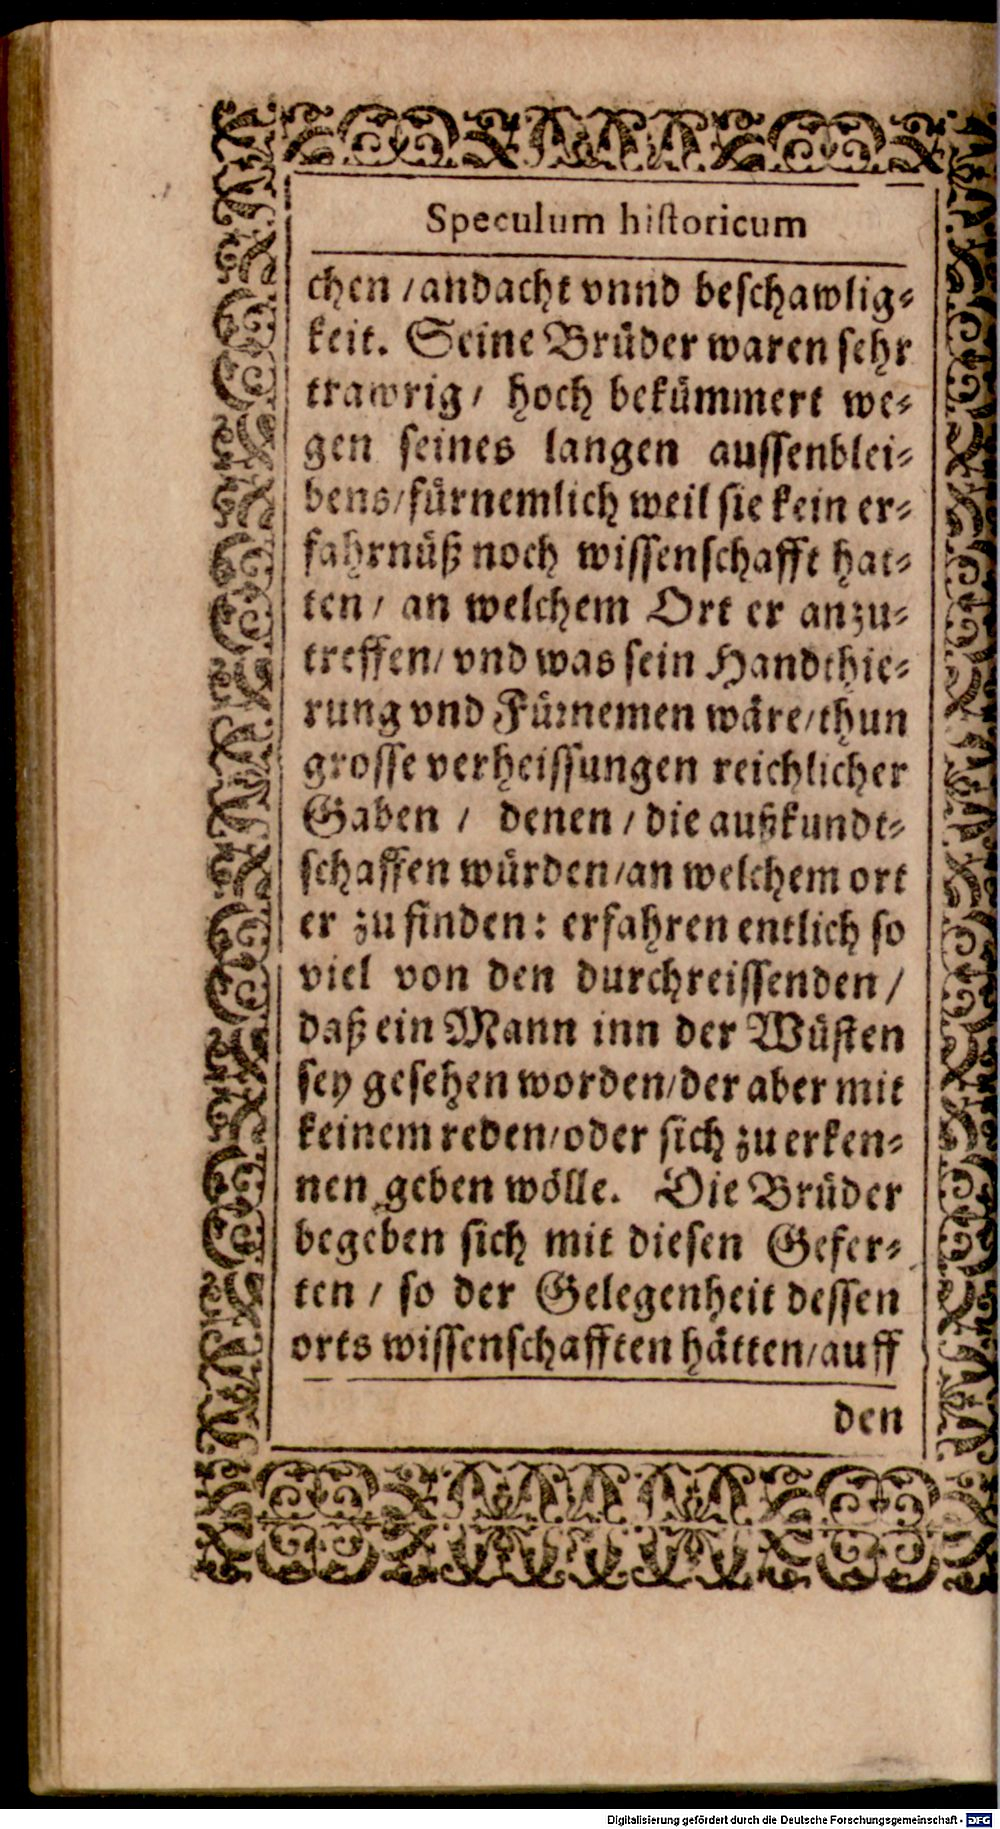 Speculum historicum
chen /andacht vnnd beschawlig-
keit. Seine Brüder waren sehr
trawrig/ hoch bekümmert we-
gen seines langen aussenblei-
bens/fürnemlich weil sie kein er-
fahrnüß noch wissenschafft hat-
ten/ an welchem Ort er anzu-
treffen/ vnd was sein Handthie-
rung vnd Fürnemen wäre/thun
grosse verheissungen reichlicher
Gaben / denen / die außkundt-
schaffen würden/an welchem ort
er zu finden: erfahren entlich so
viel von den durchreissenden/
daß ein Mann inn der Wüsten
sey gesehen worden/der aber mit
keinem reden/oder sich zu erken-
nen geben wölle. Die Brüder
begeben sich mit diesen Gefer-
ten / so der Gelegenheit dessen
orts wissenschafften hätten/auff
den
Digitalisierung gefördert durch die Deutsche Forschungsgemeinschaft - DFG